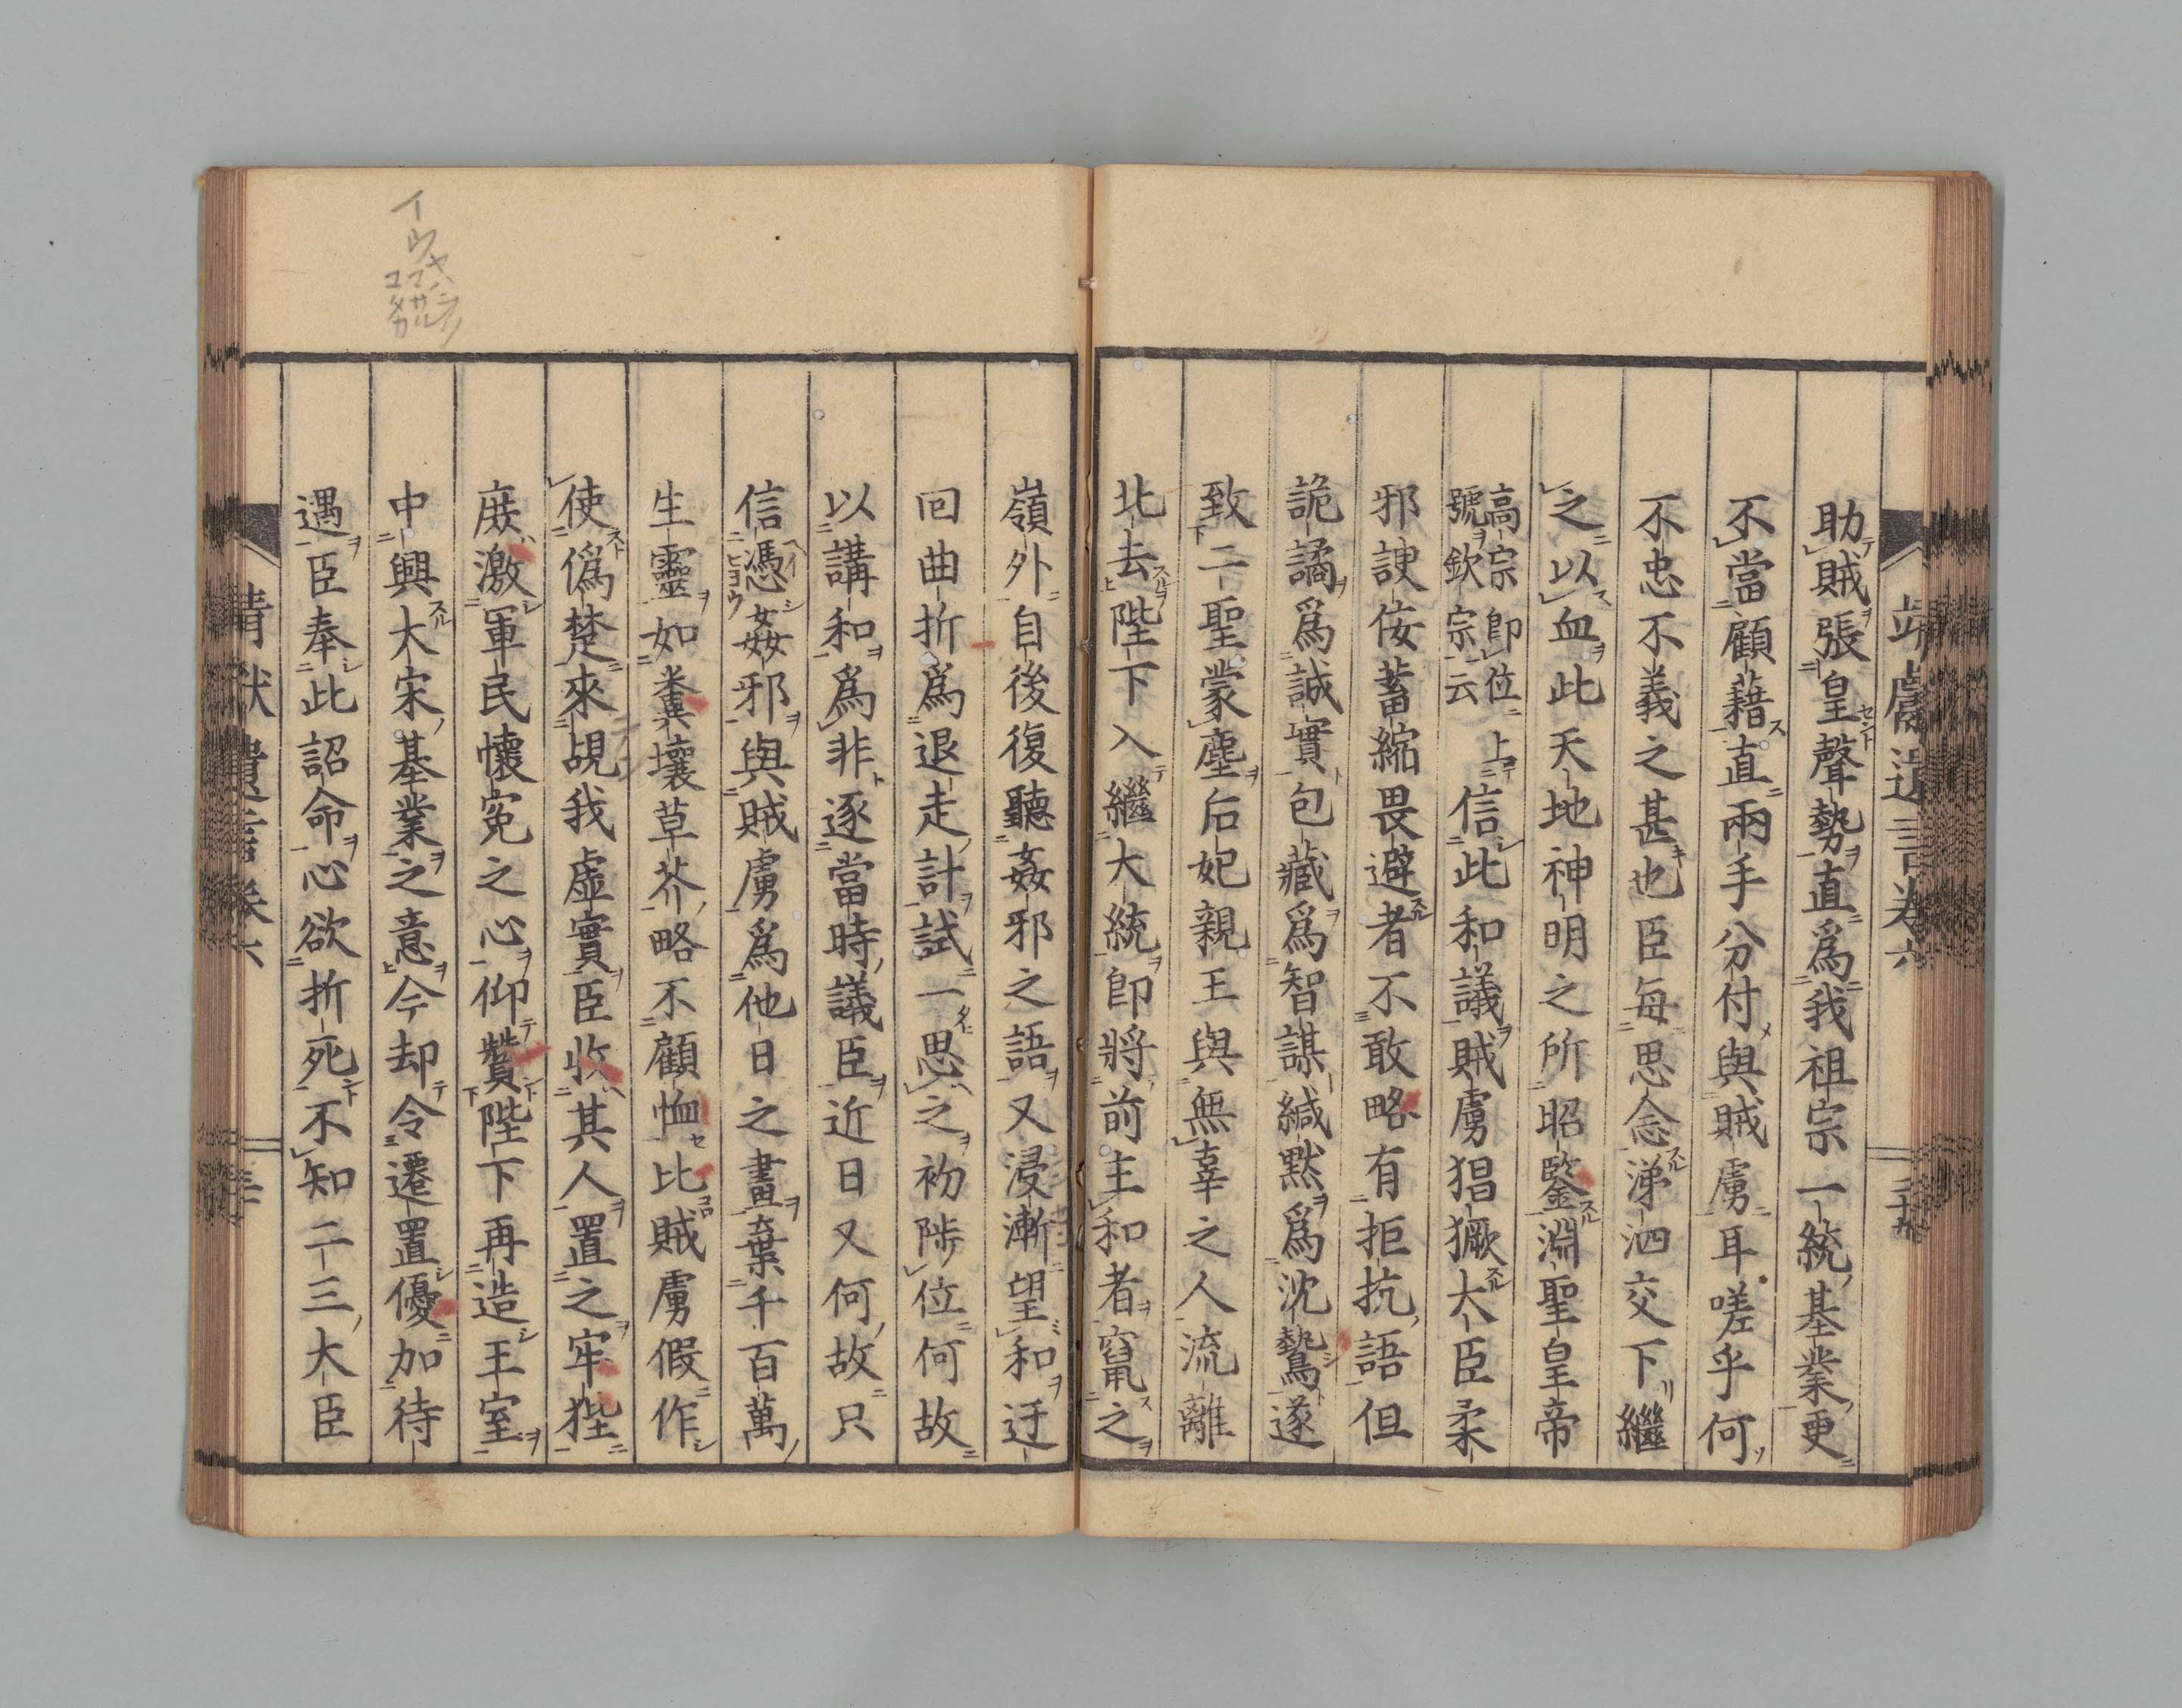 助賊張皇聲勢直爲我祖宗一統基業更
不當顧藉直兩手分付與賊虜耳嗟乎何
不忠不義之甚也臣毎思念涕泗交下繼
之以血此天地神明之所昭鑒淵聖皇帝
高宗即位上
號欽宗云
信此和議賊虜猖獗大臣柔
邪諛佞蓄縮畏避者不敢略有拒抗語但
詭譎爲誠實包藏爲智謀緘默爲沈鷙遂
致二聖蒙塵后妃親王與無辜之人流離
北去陛下入繼大統即將前主和者竄之
嶺外自後復聽姦邪之語又浸漸望和迂
回曲折爲退走計試一思之初陟位何故
以講和爲非逐當時議臣近日又何故只
信憑姦邪與賊虜爲他日之畫棄千百萬
生靈如糞壤草芥略不顧恤比賊虜假作
使僞楚來覘我虛實臣收其人置之牢狴
庶激軍民懷寃之心仰贊陛下再造王室
中興大宋基業之意今却令遷置優加待
遇臣奉此詔命心欲折死不知二三大臣